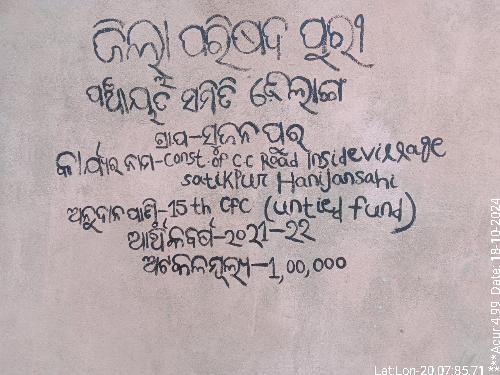 ଜିଲ୍ଲା ପରିଷଦ ପୁରୀ
ପଞ୍ଚାୟତ ସମିତି ଡେଲାଙ୍ଗ
ଗ୍ରାପ-ସୁଜନ ପୁର
କାର୍ଯ୍ୟର ନାମ-Const of CC Road Inside village
satikpur Harijansahi
ଅନୁଦାନ ପାଣ୍ଠି-15th CFC (untied fund)
ଆର୍ଥିକ ବର୍ଷ-୨୦୨୧-୨୨
ଅଟକଳ ମୂଲ୍ୟ-1,00,000
Lat:Lon-20.07:85.71
***Acur:4.99 Date: 18-10-2024